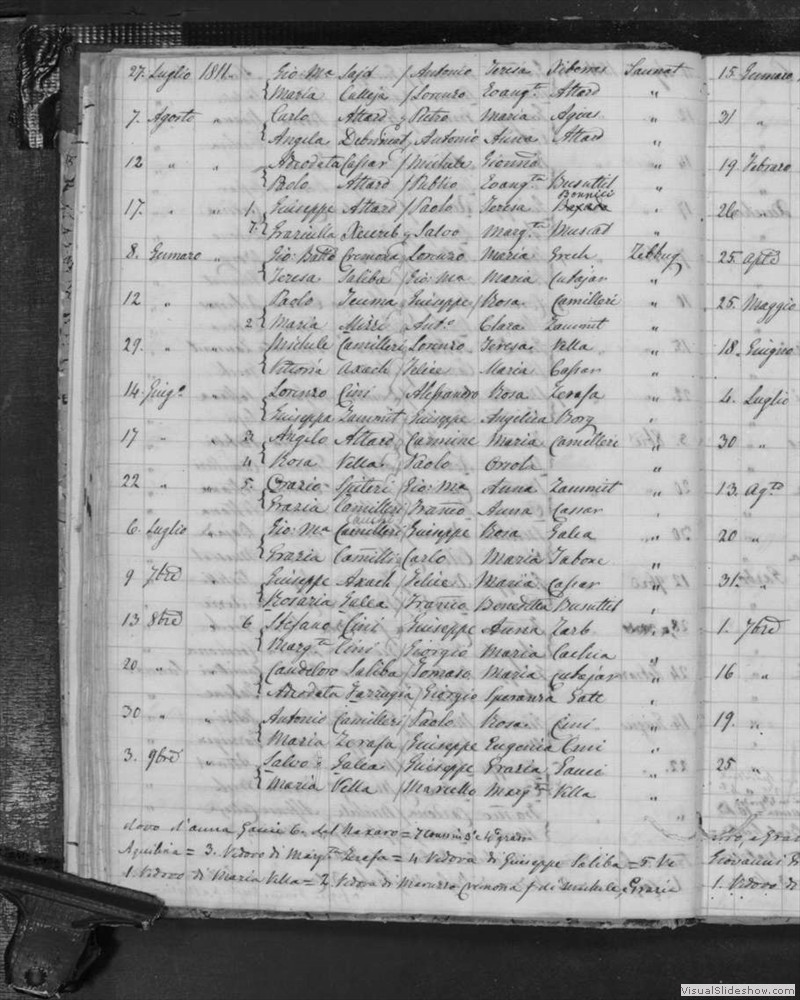 27. Luglio 1811. Gio: Mª Sajd / Antonio Teresa Sannat
Maria Calleja / Lorenzo Evang.ta Attard "
7. Agosto " Carlo Attard Pietro Maria Agius "
Angela Antonio Anna Attard "
12 " " Adeodata Cassar / Michele
Polo Attard / Publio Evang.ta Busuttil "
Bonnici
17. " " 1. Giuseppe Attard / Paolo Teresa "
7. Graziulla Xuereb Salvo Marg.ta Muscat "
8. Gennaro " Gio: Batta Cremona Lorenzo Maria Grech Zebbug
Teresa Saliba Gio: Mª Maria Cutajar "
12 " " Paolo Teuma Giuseppe / Rosa Camilleri "
2 Maria Mizzi Ant.o Clara Zammit "
29. " " Michele Camilleri Lorenzo Teresa Vella "
Vittoria Axach Felice Maria Cassar "
14. Giug.o Lorenzo Cini Alessandro Rosa Zerafa "
Giuseppa Zammit Giuseppe Angelica Borg
17 " " 3 Angelo Attard Carmine Maria Camilleri "
4 Rosa Vella Paolo Orsola "
22 " " 5. Grazio Spiteri Gio: Mª Anna Zammit "
Grazia Camilleri Franco Anna Cassar
6. Luglio " Gio: Mª Camilleri Giuseppe Rosa Galea "
Grazia Camilleri Carlo Maria Tabone "
9 7bre " Giuseppe Axach Felice Maria Cassar "
Rosaria Galea Franco Benedetta Busuttil
13 8bre " 6 Stefano Cini Giuseppe Anna Zarb "
Marg.ta Cini Giorgio Maria "
20 " " Candeloro Saliba Tomaso Maria Cutajar "
Adeodata Farrugia / Giorgio Speranza Gatt
30 " " Antonio Camilleri Paolo Rosa Cini "
Maria Zerafa Giuseppe Eugenia Cini "
3. 9bre " Salvo Galea Giuseppe Grazia Gauci "
Maria Vella Marcello Marg.ta Vella "
dovo d'anna Gauci 6. del Naxaro = 7 3º e 4º grado
Aquilina = 3. Vedovo di Marg.ta Zerafa = 4 Vedova di Giuseppe Saliba = 5 Ve
1. Vedovo di Maria Vella = 2 Vedova di Cremona f di Michele, e Grazia
15. Gennaro
31 "
19. Febraro
26.
25. Aple
25. Maggio
18. Giugno
4. Luglio
30 "
13. Ag.to
20 "
31. "
1. 7bre
16 "
19. "
25 "
Giovanni
1. Vedovo di
VisualSlideshow.com